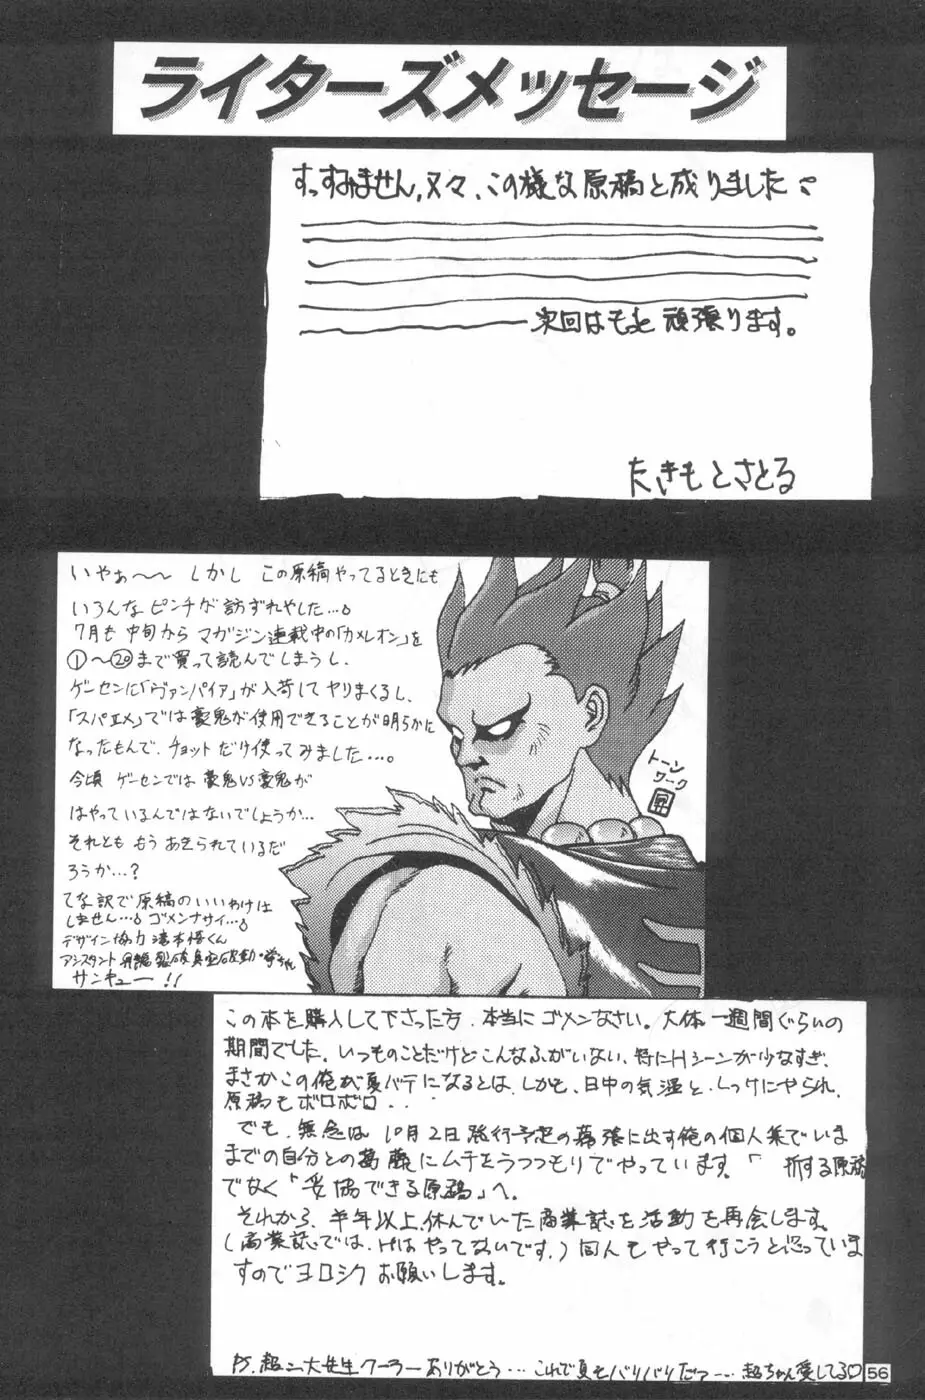 ライターズメッセージ
すっすみません,又々、この様な原稿と成りました
次回はもっと頑張ります。
たきもとさとる
いやぁ〜〜 しかし この原稿やってるときにも
いろんなピンチが訪ずれやした…。
7月も中旬から マガジン連載中の「カメレオン」を
①〜⑳まで買って読んでしまうし、
ゲーセンに「ヴァンパイア」が入荷してヤリまくるし、
「スパⅡX」では豪鬼が使用できることが明らかに
なったもんで、チョットだけ使ってみました…。
今頃 ゲーセンでは豪鬼VS豪鬼が
はやっているんではないでしょうか…
それとも もう あきられているだ
ろうか…?
てな訳で原稿のいいわけは
しません…。ゴメンナサイ…。
デザイン協力 滝本悟くん
アシスタント
サンキュー!!
トーン
ワーク
昇
この本を購入して下さった方、本当にゴメンなさい。大体一週間ぐらいの
期間でした。いつものことだけどこんなふがいない、特にHシーンが少なすぎ、
まさかこの俺が夏バテになるとは、しかも、日中の気温と、しっけにやられ、
原稿もボロボロ・・
でも、無念は10月2日発行予定の幕張に出す俺の個人集でいま
までの自分との葛藤にムチをうつつもりでやっています。「 折する原稿
でなく「妥協できる原稿」へ。
それから、半年以上、休んでいた商業誌を活動を再会します。
(商業誌では、Hはやってないです。)同人もやって行こうと思っていま
すのでヨロシクお願いします。
P.S. 超二大先生クーラーありがとう…これで夏もバリバリだっ…超ちゃん愛してる♡
56